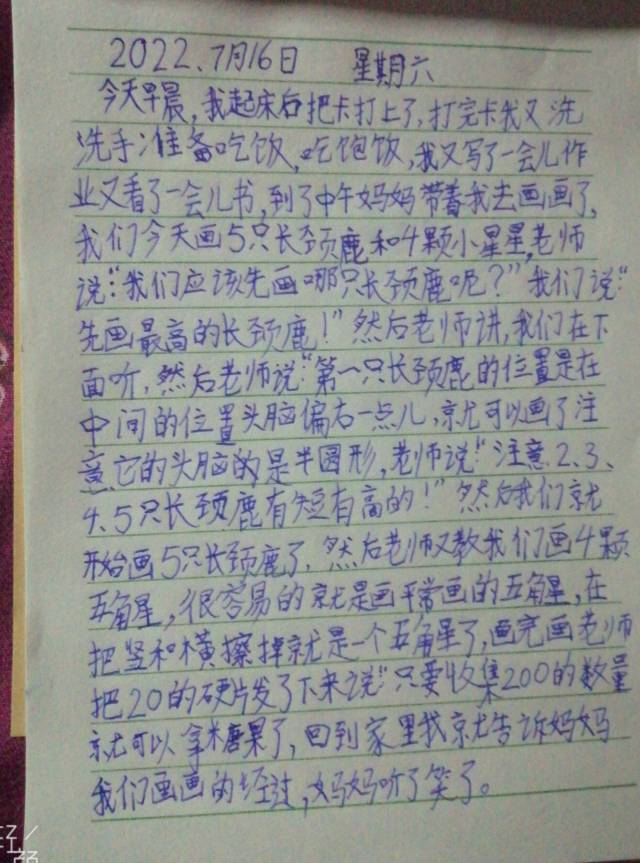 2022、7月16日 星期六
今天早晨,我起床后把卡打上了,打完卡我又洗
洗手准备吃饭,吃饱饭,我又写了一会儿作
业又看了一会儿书,到了中午妈妈带着我去画画了,
我们今天画5只长颈鹿和4颗小星星,老师
说:“我们应该先画哪只长颈鹿呢?”我们说:“
先画最高的长颈鹿!”然后老师讲,我们在下
面听,然后老师说“第一只长颈鹿的位置是在
中间的位置头脑偏右一点儿,就可以画了注
意它的头脑的是半圆形,老师说:“注意2、3、
4、5只长颈鹿有短有高的!”然后我们就
开始画5只长颈鹿了,然后老师又教我们画4颗
五角星,很容易的就是画平常画的五角星,在
把竖和横擦掉就是一个五角星了,画完画老师
把20的硬片发了下来说“只要收集200的数量
就可以拿糖果了,回到家里我就告诉妈妈
我们画画的经过,妈妈听了笑了。